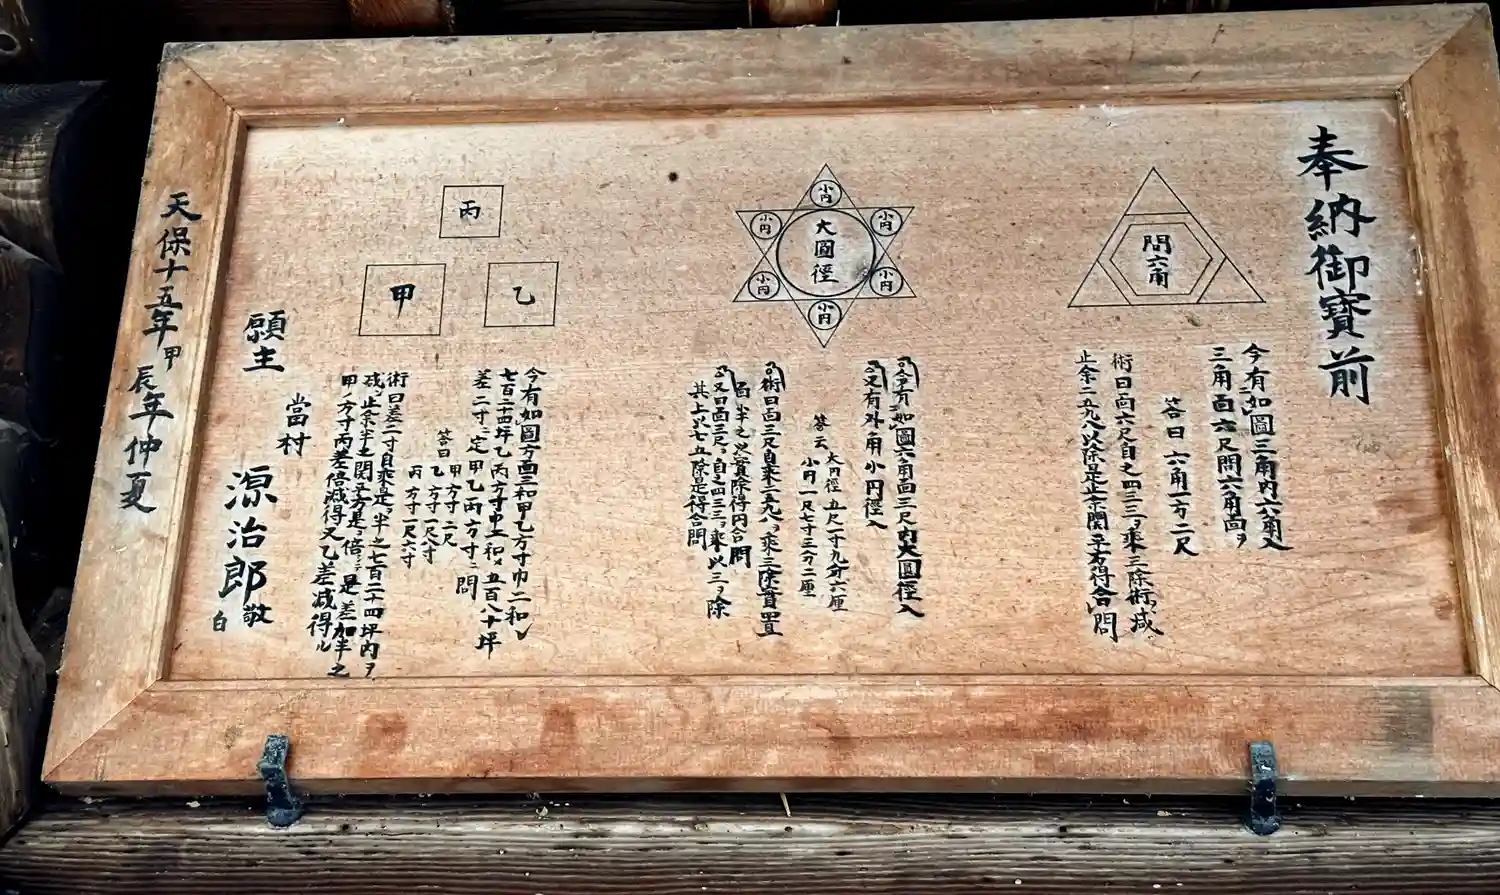 奉納御寳前
問六角
今有如圖三角内六角入
三角面六尺問六角面ヲ
答曰 六角一方二尺
術曰面六尺自之四三三ヲ乗シ三除術ニ減
止余二五九八以除是止余開平方得合問
小円
小円
小円
大圓徑
小円
小円
小円
今有如圖六角面三尺内大圓徑入
又有外角小円徑入
答云 大円徑五尺一寸九分六厘
小円一尺七寸三分二厘
術曰面三尺自乗二五九八ヲ乗三除實四置
面半之以實除得円合問
又曰面三尺自之四三三ヲ乗以三ヲ除
其上以七五除是得合問
丙
甲
乙
今有如圖方面三和甲乙方寸巾二和〆
七百二十四坪乙丙方寸巾二和〆五百八十坪
差二寸ニ定甲乙丙方寸ニ問
答曰 甲方寸二尺
乙方寸一尺八寸
丙方寸一尺六寸
術曰差二寸自乗是ヲ半之七百二十四坪内ヲ
減シ止余半之開平方是ヲ倍シテ是差加半之
甲ノ方寸丙差倍減得又乙差減得ル
願主
當村
源治郎
敬
白
天保十五年甲
辰年仲夏